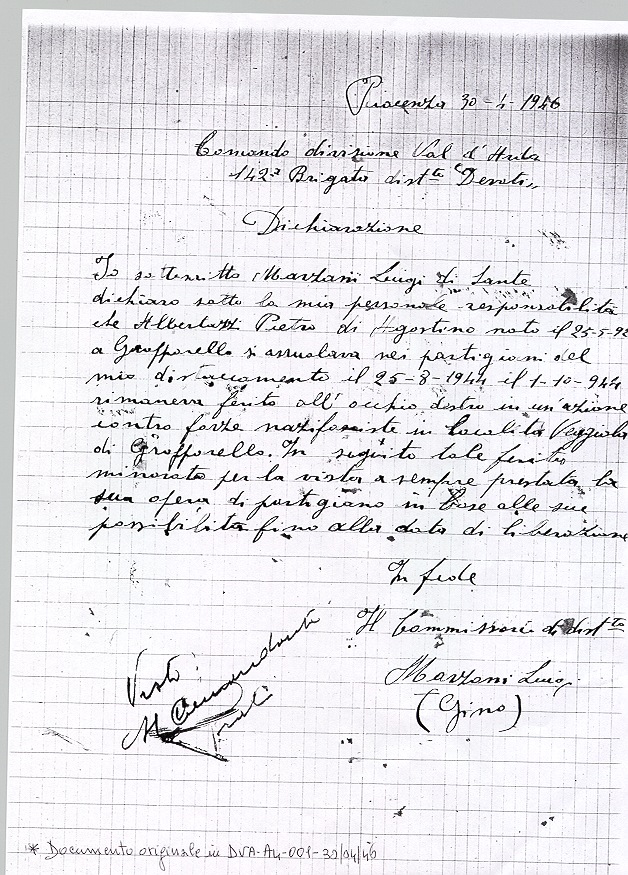 Piacenza 30-4-1946
Comando divisione Val d'Arda
142ª Brigata dist.to Devoti„
Dichiarazione
Io sottoscritto Marzani Luigi di Sante
dichiaro sotto la mia personale responsabilità
che Albertazzi Pietro di Agostino nato il 25-5-92
a Gropparello si arruolava nei partigiani del
mio distaccamento il 25-8-1944 il 1-10-944
rimaneva ferito all'occhio destro in un'azione
contro forze nazifasciste in località
di Gropparello. In seguito tale ferita
minorato per la vista a sempre prestata la
sua opera di partigiano in base alle sue
possibilità fino alla data di liberazione
In fede
Il Commissario di dist.to
Marzani Luigi
(Gino)
Visto:
Il Comandante
* Documento originale in DVA-A4-001-30/04/46